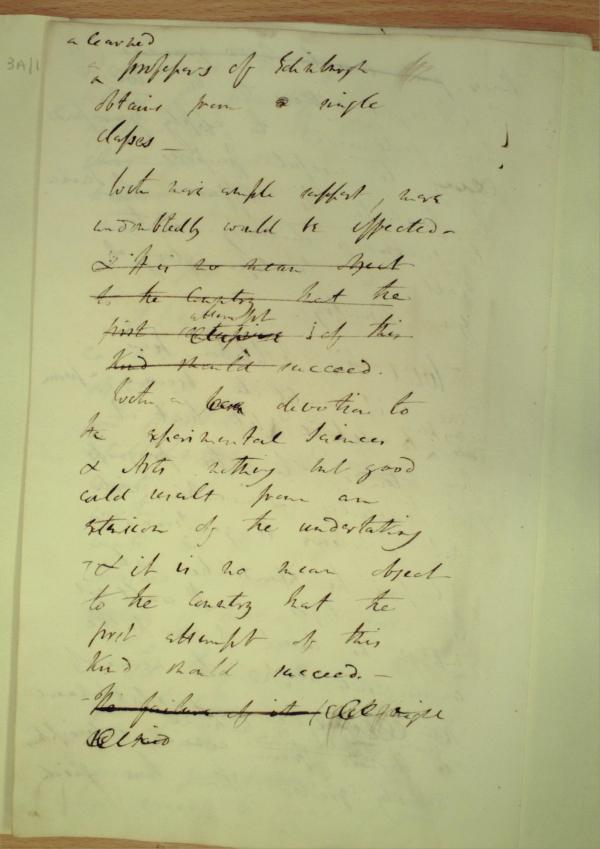 3A/1
a learned
a professors of Edinburgh
obtains from a single
classes —
With more ample support, more
undoubtedly would be effected -
& It is no mean object
to the Country that the
attempt
first of this
Kind should succeed.
With a devotion to
the experimental Sciences
& Arts nothing but good
could result from an
extension of the undertaking
& it is no mean object
to the country that the
first attempt of this
Kind should succeed. —
The failure of it